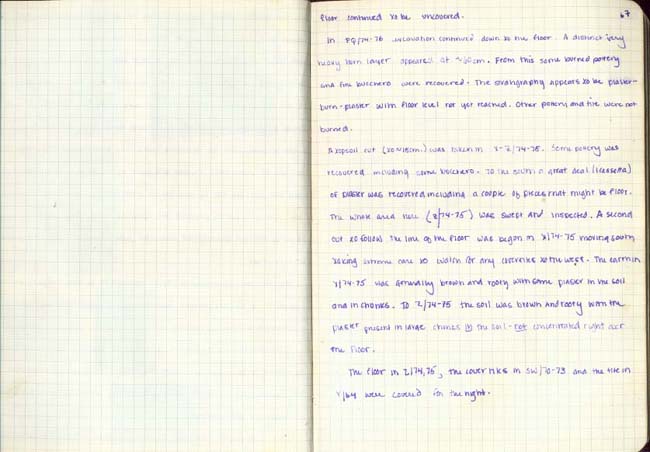 67
floor continued to be uncovered.
In PQ/74-76 excavation continued down to the floor. A distinct very
heavy burn layer appeared at ~60cm. From this some burned pottery
and fine bucchero were recovered. The stratigraphy appears to be plaster-
burn-plaster with floor level not yet reached. Other pottery and tile were not
burned.
A topsoil cut (to ~15cm.) was taken in Y-Z/74-75. Some pottery was
recovered including some bucchero. To the south a great deal
of plaster was recovered including a couple of pieces that might be floor.
The whole area here (Z/74-75) was swept and inspected. A second
cut to follow the line of the floor was begun in Y/74-75 moving south,
taking extreme care to watch for any cover tiles to the west. The earth in
Y/74-75 was generally brown and rooty with some plaster in the soil
and in chunks. To Z/74-75 the soil was brown and rooty with the
plaster present in large chunks in the soil - not concentrated right over
the floor.
The floor in Z/74,75, the cover tiles in SW/70-73 and the tile in
Y/64 were covered for the night.